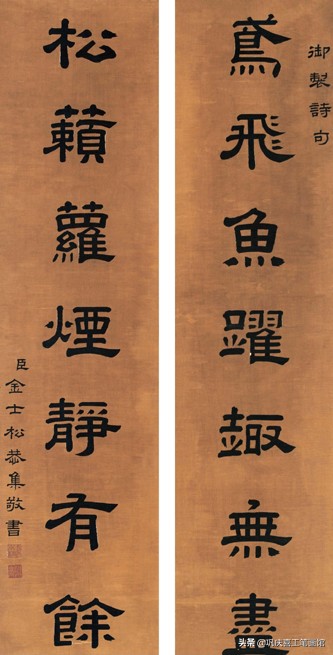 御製詩句
鳶飛魚躍趣無盡
松籟蘿煙靜有餘
臣金士松恭集敬書
头条 @巩伏喜工笔画馆